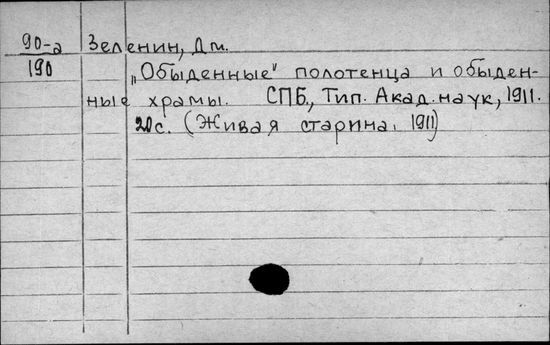 90-а Зеленин, Дм.
190 „Обыденные" полотенца и обыден-
ные храмы. СПБ., Тип. Акад. наук, 1911.
20с. (Живая старина, 1911)